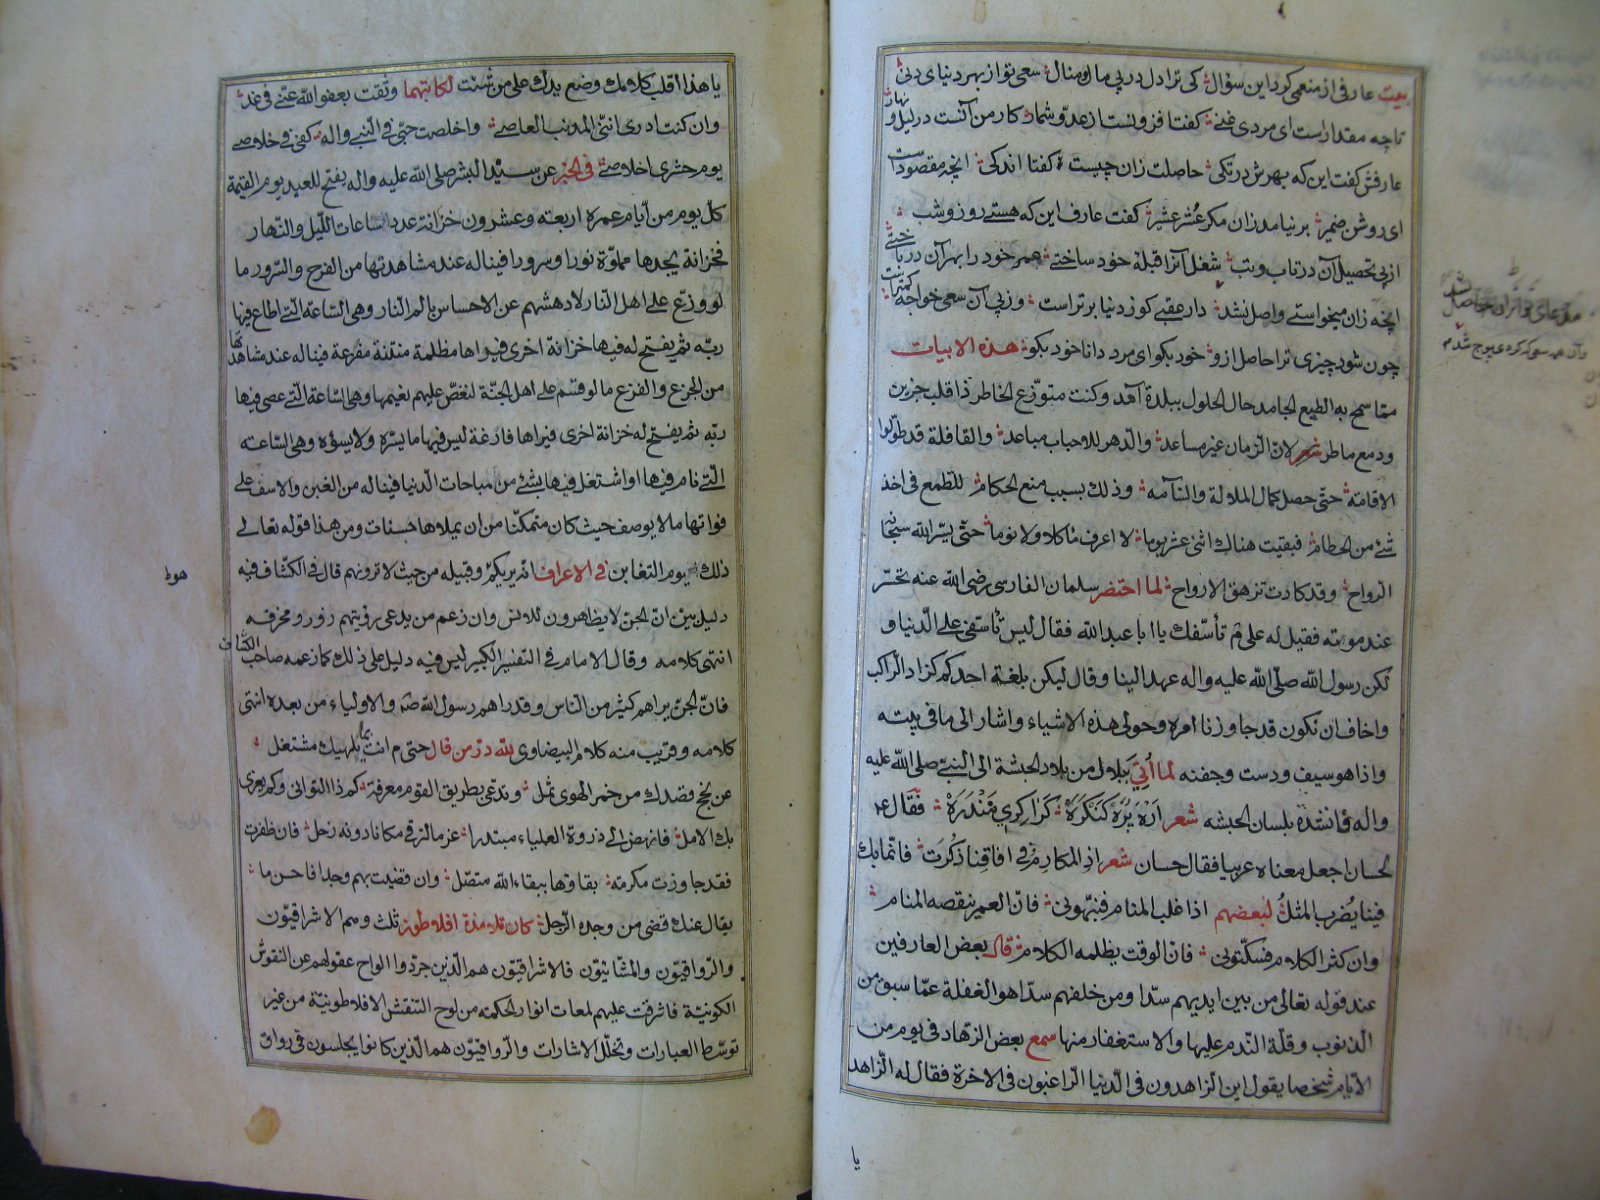 بیت عارفی از منعمی کرد این سؤال کی ترا دل در پی مال و منال سعی تو از بهر دنیای دنی
تا چه مقدار است ای مردی غنی کفت افزونست از عد و شمار کار من آنست در لیل و نهار
عارفش کفت این که بهرش در تکی حاصلت زان چیست کفتا اندکی انچه مقصود است
ای روشن ضمیر بر نیامد زان مکر عُشر عشیر کفت عارف این که هستی روز و شب
از پی تحصیل آن در تاب و تب شغل آنرا قبلهٔ خود ساختی عمر خود را بهر آن در باختی
انچه زان میخواستی واصل نشد دار عقبی کو ز دنیا برتر است وز پی آن سعی خواجه کمترست
چون شود چیزی ترا حاصل ازو خود بکو ای مرد دانا خود بکو هذه الابیات
مما سمح به الطبع الجامد حال الحلول ببلدة آمد وکنت متوزّع الخاطر ذا قلب حزین
ودمع ماطر شعر لانّ الزمان غیر مساعد والدهر للاحباب مباعد والقافلة قد طوّلوا
الاقامة حتّی حصل کمال الملالة والسآمه وذلك بسبب منع الحکام للطمع فی اخذ
شئ من الحطام فبقیت هناك اثنی عشر یوما لا اعرف ماکلا ولا نوما حتّی یسّر الله سبحانه
الرواح وقد کادت تزهق الارواح لما احتضر سلمان الفارسی رضی الله عنه تحسّر
عند موته فقیل له علی مَ تأسّفك یا ابا عبد الله فقال لیس تأسّفی علی الدنیا و
لکن رسول الله صلّی الله علیه واله عهد الینا وقال لیکن بلغة احدکم کزاد الراکب
واخاف ان نکون قد جاوزنا امره وحولی هذه الاشیاء واشار الی ما فی بیته
واذا هو سیف ودست وجفنه لما أُتی ببلال من بلاد الحبشة الی النبیّ صلی الله علیه
واله فانشده بلسان الحبشه شعر اَرَه بَرَّهْ کَنْکَرَهْ کَرَا کِرِي مَنْدَرَهْ فقال ع
لحسان اجعل معناه عربیا فقال حسان شعر اذ المکارم فی افاقنا ذُکرت فانّما بك
فینا یُضرب المثلُ لبعضهم اذا غلب المنام فنبّهونی فان العمر ینقصه المنام
وان کثر الکلام فسکّتونی فانّ الوقت یظلمه الکلام قال بعض العارفین
عند قوله تعالی من بین ایدیهم سدّا ومن خلفهم سدّا هو الغفلة عمّا سبق من
الذنوب وقلّة الندم علیها والاستغفار منها سمع بعض الزهاد فی یوم من
الأیام شخصا یقول این الزاهدون فی الدنیا الراغبون فی الاخرة فقال له الزاهد
یا
مدعای تو ازان حاصل نشد
یا هذا اقلب کلامك وضع یدك علی من شئت لکاتبهما وثقت بعفو الله عنّی فی غد
وان کنت ادری انّنی المذنب العاصی واخلصت حبّی فی النبی واله کفی فی خلاصی
یوم حشری اخلاصی فی الخبر عن سید البشر صلی الله علیه واله یفتح للعبد یوم القیمة
کلّ یوم من أیام عمره اربعة وعشرون خزانة عدد ساعات اللیل والنهار
فخزانة یجدها مملوّة نورا وسرورا فیناله عند مشاهدتها من الفرح والسّرور ما
لو وزّع علی اهل النار لادهشهم عن الاحساس بالم النار وهی الساعة التی اطاع فیها
ربّه ثم یفتح له فیها خزانة اخری فیراها مظلمة منتنة مفزعة فیناله عند مشاهدتها
من الجزع والفزع ما لو قسّم علی اهل الجنّة لنغّص علیهم نعیمها وهی الساعة التی عصی فیها
ربّه ثم یفتح له خزانة اخری فیراها فارغة لیس فیها ما یسرّه ولا یسؤه وهی الساعة
الّتی نام فیها او اشتغل فیها بشئ من مباحات الدنیا فیناله من الغبن والاسف علی
فواتها ما لا یوصف حیث کان متمکّنا من ان یملاها حسنات ومن هذا قوله تعالی
ذلك یوم التغابن فی الاعراف انه یریکم هو وقبیله من حیث لا ترونهم قال فی الکشّاف فیه
دلیل بیّن انّ الجنّ لا یظاهرون للانس وان زعم من یدعی رؤیتهم زور ومخرقه
انتهی کلامه وقال الامام فی التفسیر الکبیر لیس فیه دلیل علی ذلك کما زعمه صاحب الکشّاف
فانّ الجنّ یراهم کثیر من الناس وقد راهم رسول الله صه والاولیاء من بعده انتهی
کلامه وقریب منه کلام البیضاوی لله درّ من قال حتی م انت بما یلهیك مشتغل
عن نجح قصدك من خمر الهوی ثمل وتدّعی بطریق القوم معرفة کم ذا التوانی وکم یغری
بك الامل فانهض الی ذروة العلیاء مبتدرا عزما لترقی مکانا دونه زحل فان ظفرت
فقد جاوزت مکرمة بقاؤها ببقاء الله متصّل وان قضیت بهم وجدا فاحسن ما
یقال عنك قضی من وجده الرجل کان تلامذة افلاطون ثلث وهم الاشراقیّون
والرواقیّون والمشائیّون فالاشراقیّون هم الذین جردوا الواح عقولهم عن النقوش
الکونیّة فاشرقت علیهم لمعات انوار الحکمة من لوح النقش الافلاطونیّة من غیر
توسّط العبارات وتخلّل الاشارات والرواقیّون هم الذین کانوا یجلسون فی رواق